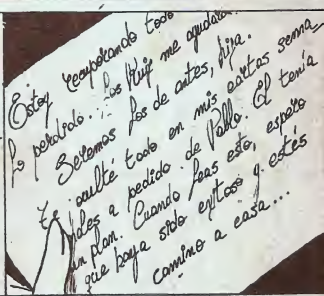 Estoy recuperando todo
lo perdido... Los Ruif me ayudaron.
Seremos los de antes, hija.
Te oculté todo en mis cartas sema_
nales a pedido de Pablo. Él tenía
un plan. Cuando leas esto, espero
que haya sido exitoso y estés
camino a casa...